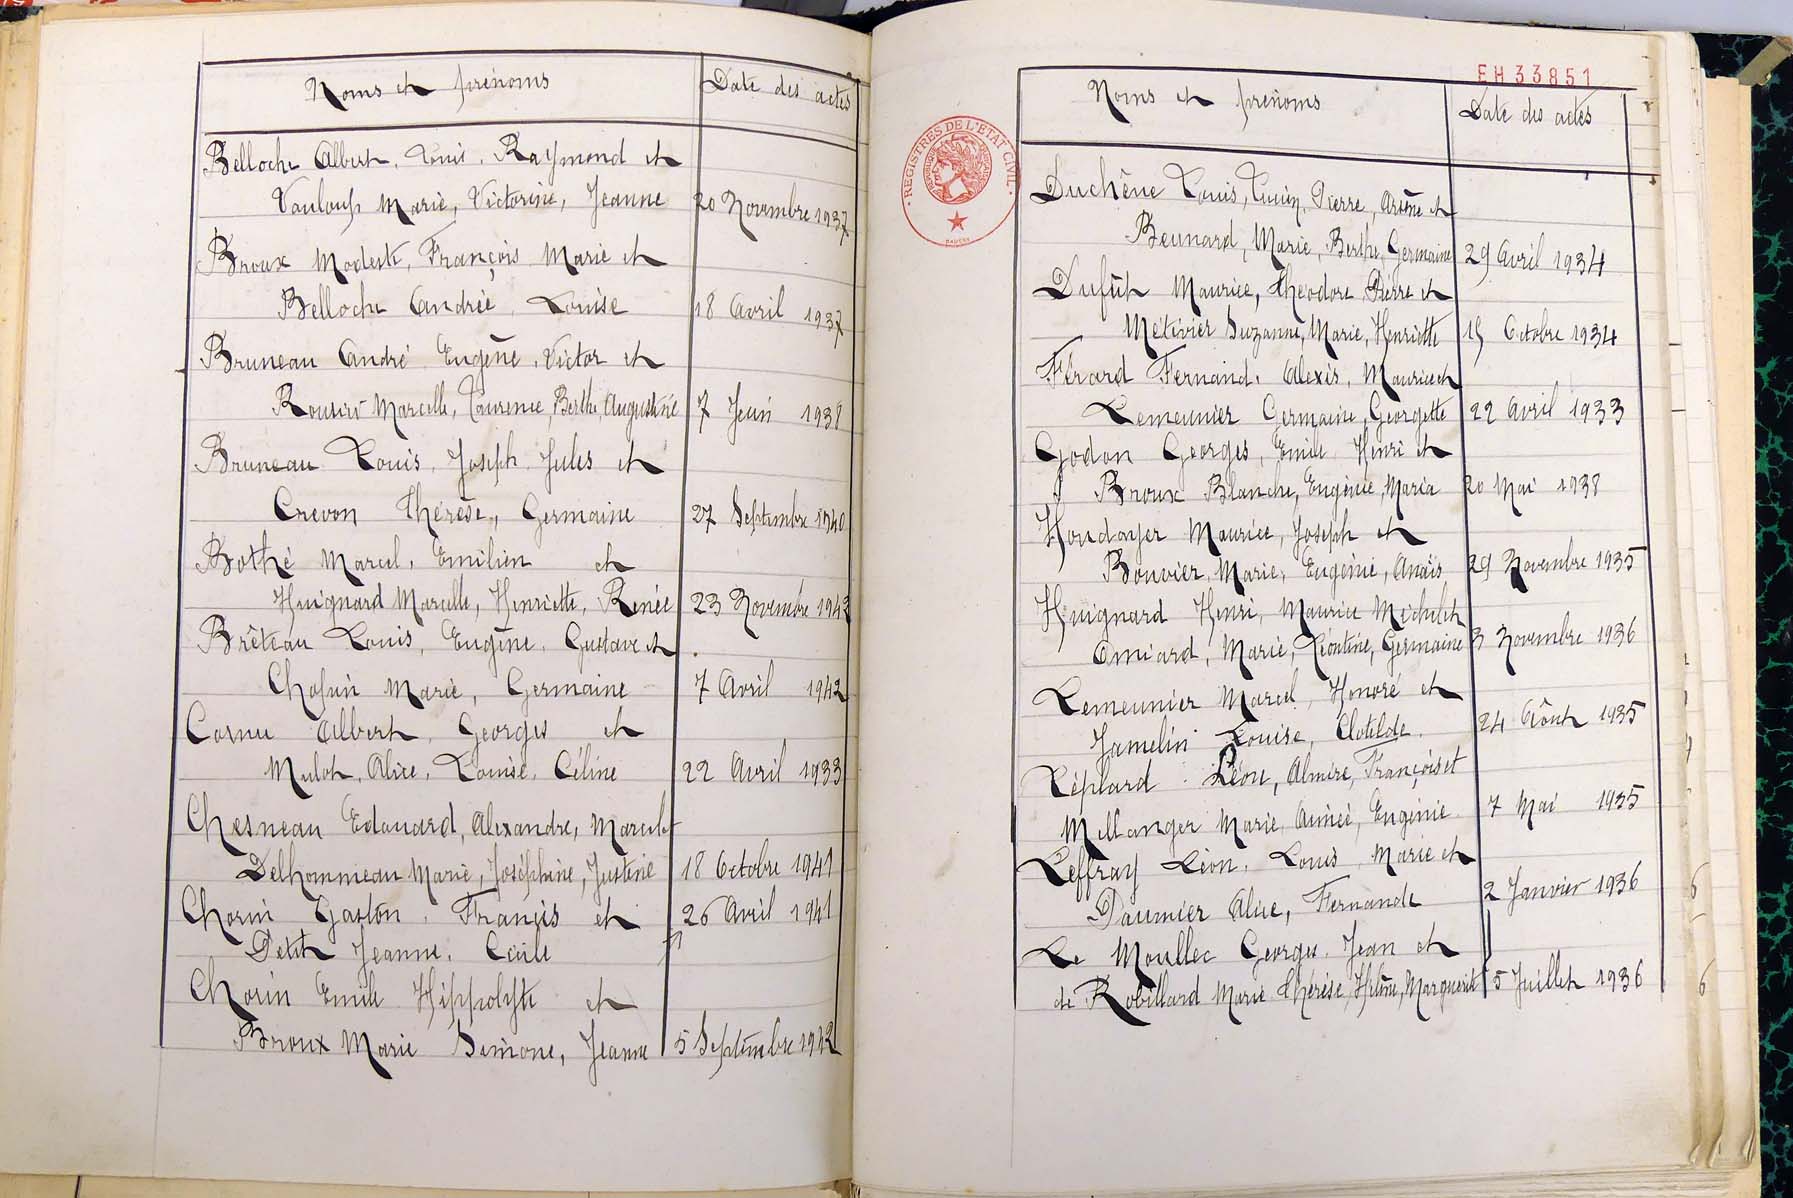 Noms et prénoms
Date des actes
Belloche Albert, Louis, Raymond et
Vauloup Marie, Victorine, Jeanne
20 Novembre 1937
Broux Modeste, François Marie et
Belloche Andrée, Louise
18 Avril 1937
Bruneau André Eugène, Victor et
Marcelle, Laurence, Berthe, Augustine
7 Juin 1938
Bruneau Louis, Joseph Jules et
Crevon Thérèse, Germaine
27 Septembre 1940
Bothé Marcel, Emilien et
Huignard Marcelle, Henriette, Renée
23 Novembre 1942
Brêteau Louis, Eugène, Gustave et
Marie, Germaine
7 Avril 1942
Cornu Albert, Georges et
Mulot, Alice, Louise, Céline
22 Avril 1933
Chesneau Edouard, Alexandre, Marcel et
Delhommeau Marie, Joséphine, Justine
18 Octobre 1941
Chorin Gaston, François et
26 Avril 1941
Petit Jeanne, Cécile
Chorin Emile Hippolyte et
Broux Marie Simone, Jeanne
5 Septembre 1942
EH33851
REGISTRES DE L'ETAT CIVIL
Noms et prénoms
Date des actes
Duchêne Louis, Lucien, Pierre, Arsène et
Beunard, Marie, Berthe, Germaine
29 Avril 1934
Dufût Maurice, Théodore Pierre et
Métivier Suzanne, Marie, Henriette
Octobre 1934
Férard Fernand, Alexis, Maurice et
Lemeunier Germaine, Georgette
22 Avril 1933
Godon Georges, Emile Henri et
Broux Blanche, Eugénie, Maria
20 Mai 1938
Houdayer Maurice, Joseph et
Bouvier, Marie, Eugénie, Anaïs
29 Novembre 1935
Huignard Henri, Maurice Michel et
Omiard, Marie, Léontine, Germaine
3 Novembre 1936
Lemeunier Marcel, Honoré et
Jamelin Louise, Clotilde.
24 Août 1935
Léplard Léon, Almire, François et
Mellanger Marie Aimée, Eugénie
7 Mai 1935
Leffray Léon, Louis Marie et
Daumier Alice, Fernande
2 Janvier 1936
Le Moullec Georges Jean et
de Robillard Marie Thérèse, Hélène, Marguerite
5 Juillet 1936